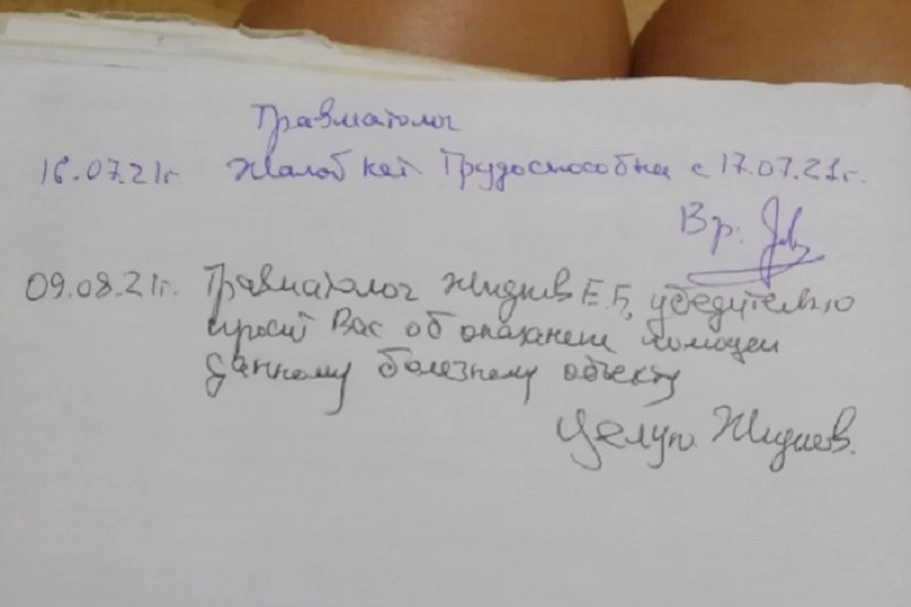 Травматолог
16.07.21г. Жалоб нет Трудоспособна с 17.07.21г.
Вр.
09.08.21г. Травматолог Жидиев Е.Б, убедительно
просит Вас об оказании помощи
данному болезному объекту
Целую. Жидиев.